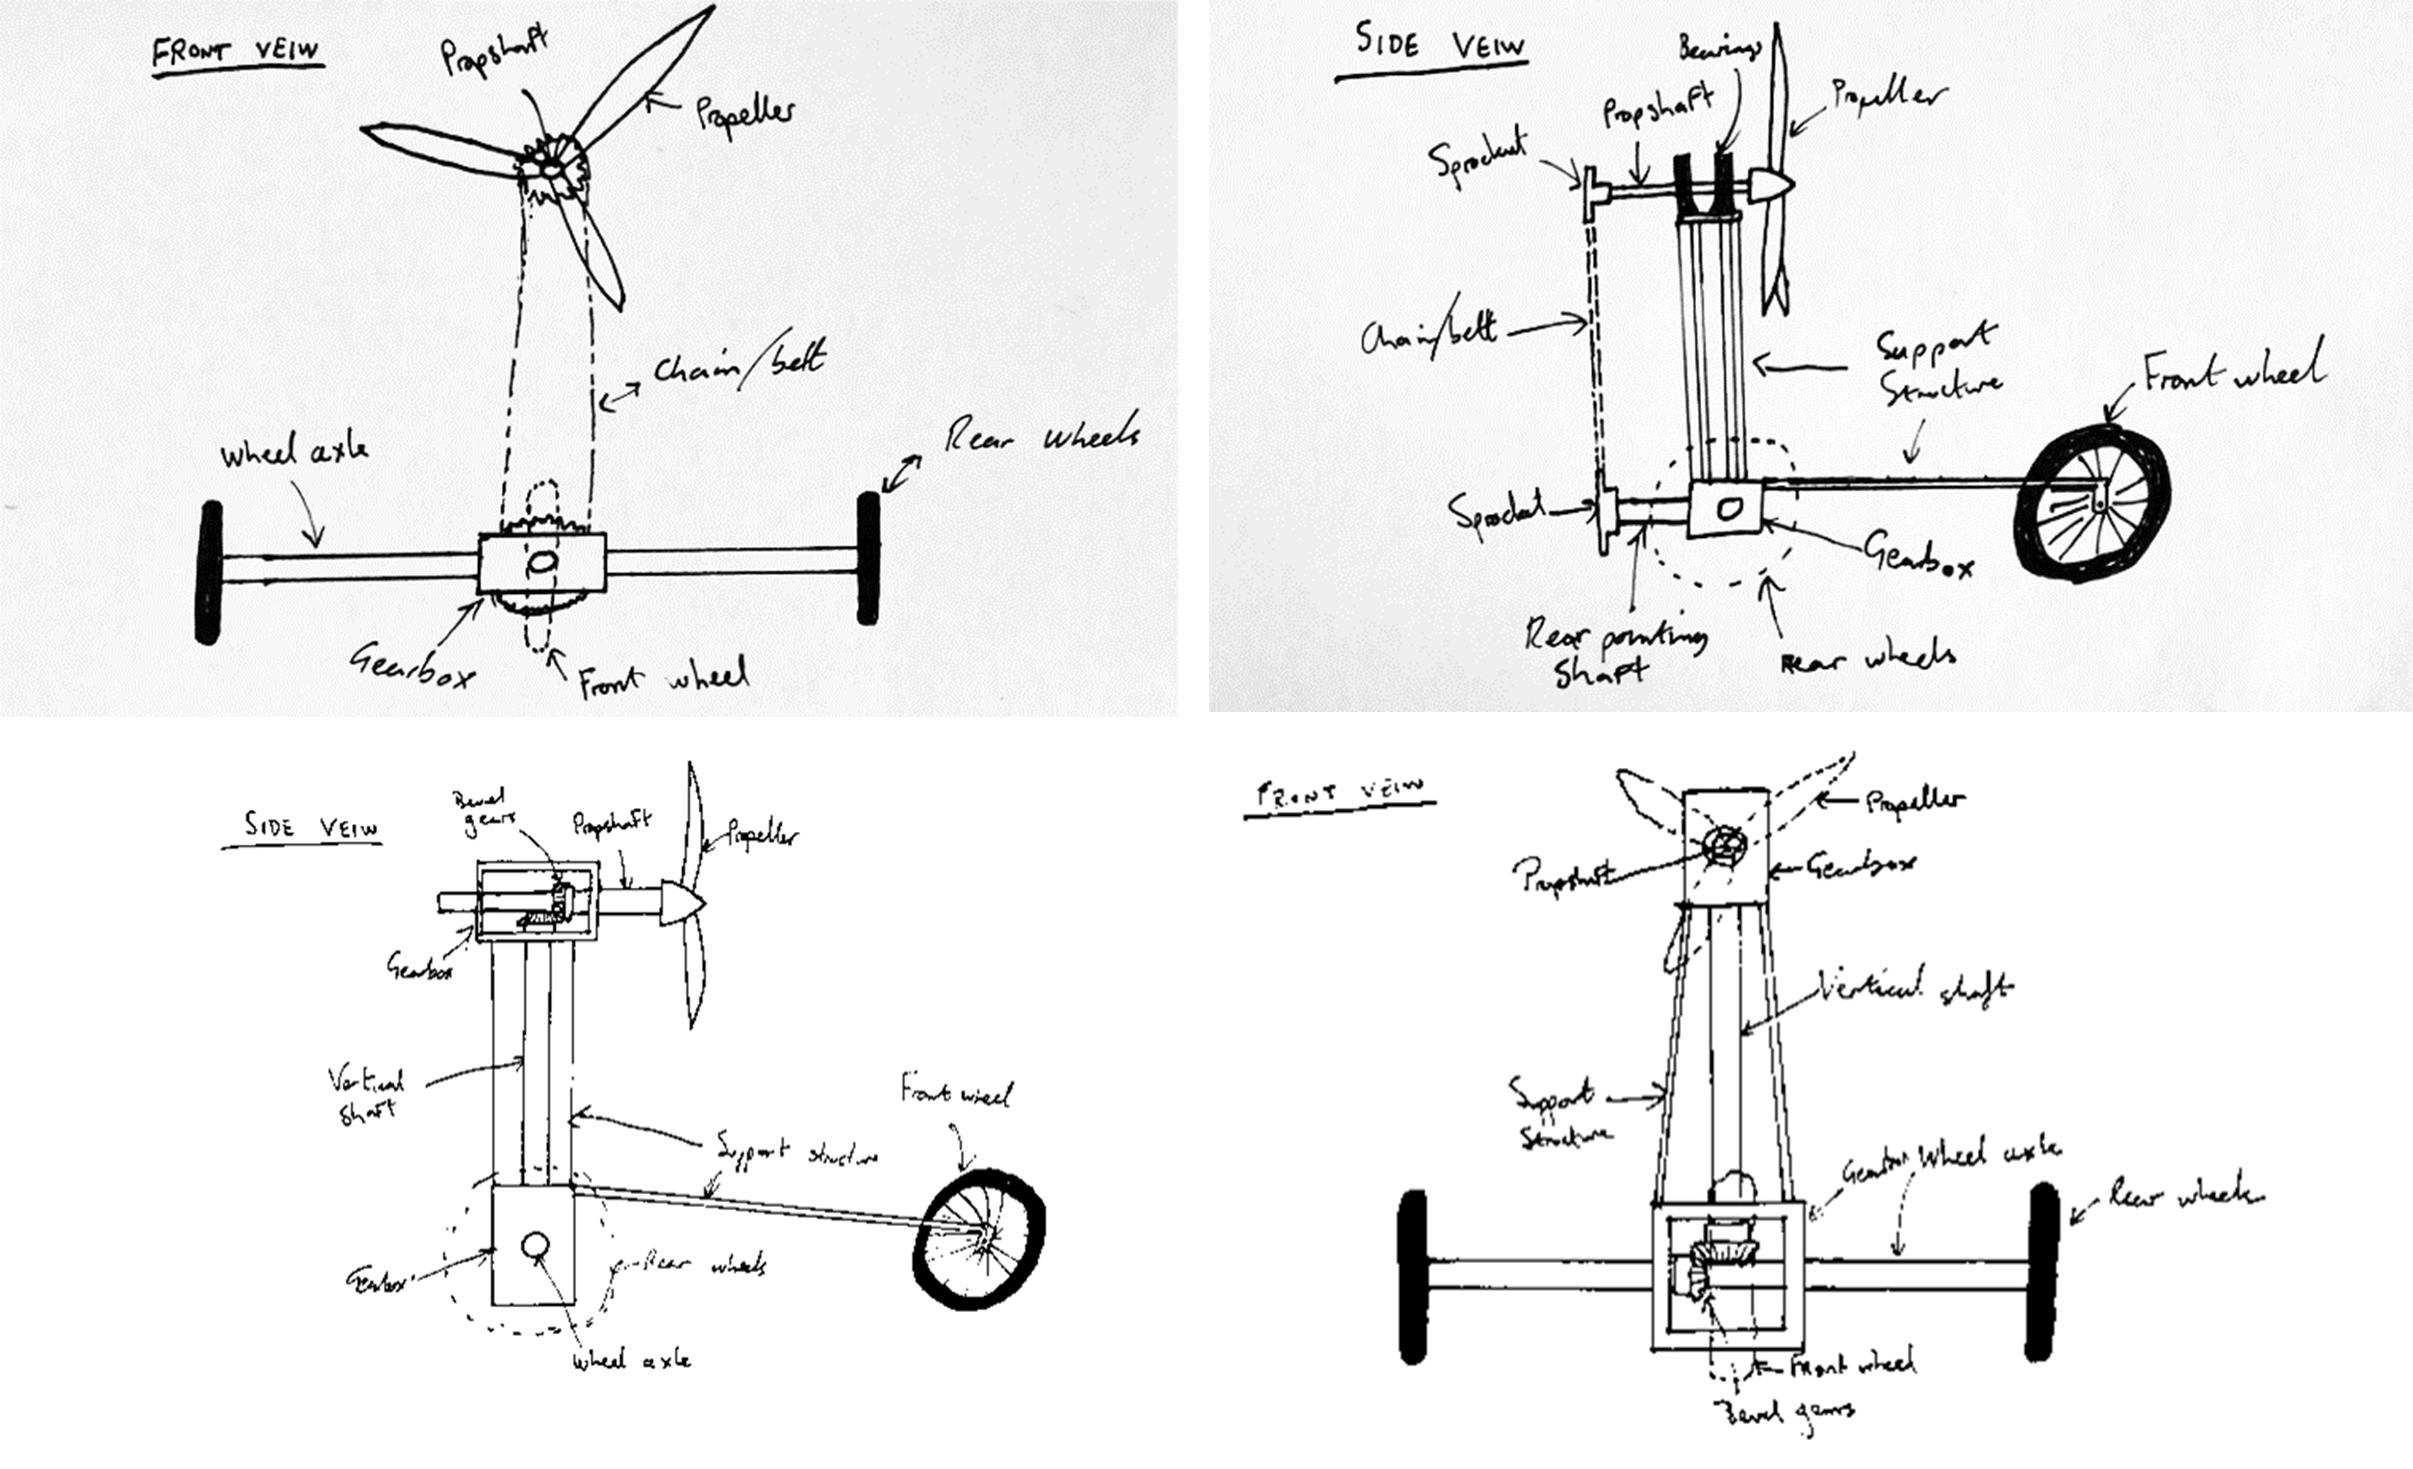 FRONT VEIW
Propshaft
Propeller
Chain/belt
Wheel axle
Rear wheels
Gearbox
Front wheel
SIDE VEIW
Bearings
Propshaft
Propeller
Sprocket
Chain/belt
Support
Structure
Front wheel
Sprocket
Gearbox
Rear pointing
Shaft
Rear wheels
SIDE VEIW
Bevel
gears
Propshaft
Propeller
Gearbox
Vertical
Shaft
Front wheel
Support structure
Gearbox
Rear wheels
Wheel axle
FRONT VEIW
Propeller
Propshaft
Gearbox
Vertical shaft
Support
Structure
Gearbox
Wheel axle
Rear wheels
Front wheel
Bevel gears